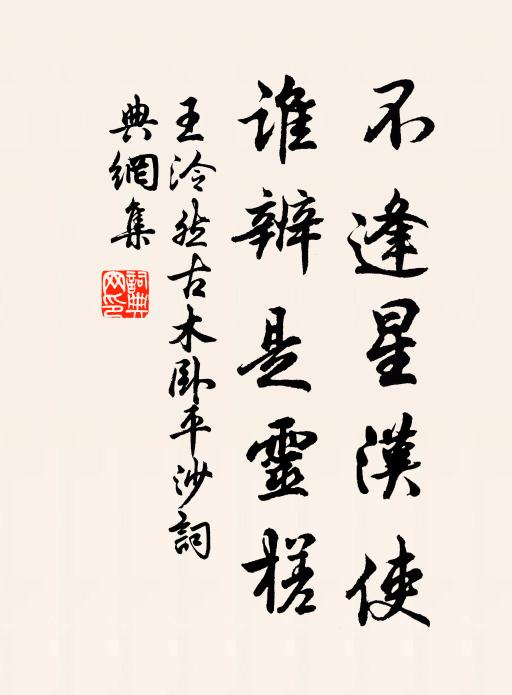 不逢星漢使
誰辨是靈槎
王泠然古木臥平沙詞
典網集
詞典网印